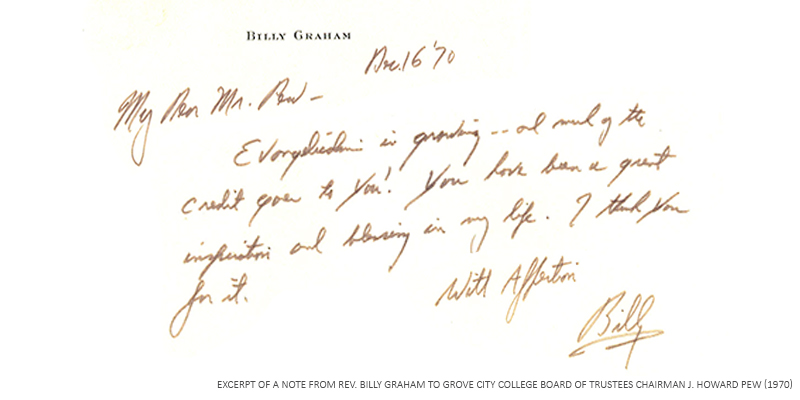 BILLY GRAHAM
Dec. 16 '70
My Dear Mr. Pew –
Evangelicalism is growing -- and much of the
credit goes to you! You have been a great
inspiration and blessing in my life. I thank you
for it.
With Affection
Billy
EXCERPT OF A NOTE FROM REV. BILLY GRAHAM TO GROVE CITY COLLEGE BOARD OF TRUSTEES CHAIRMAN J. HOWARD PEW (1970)